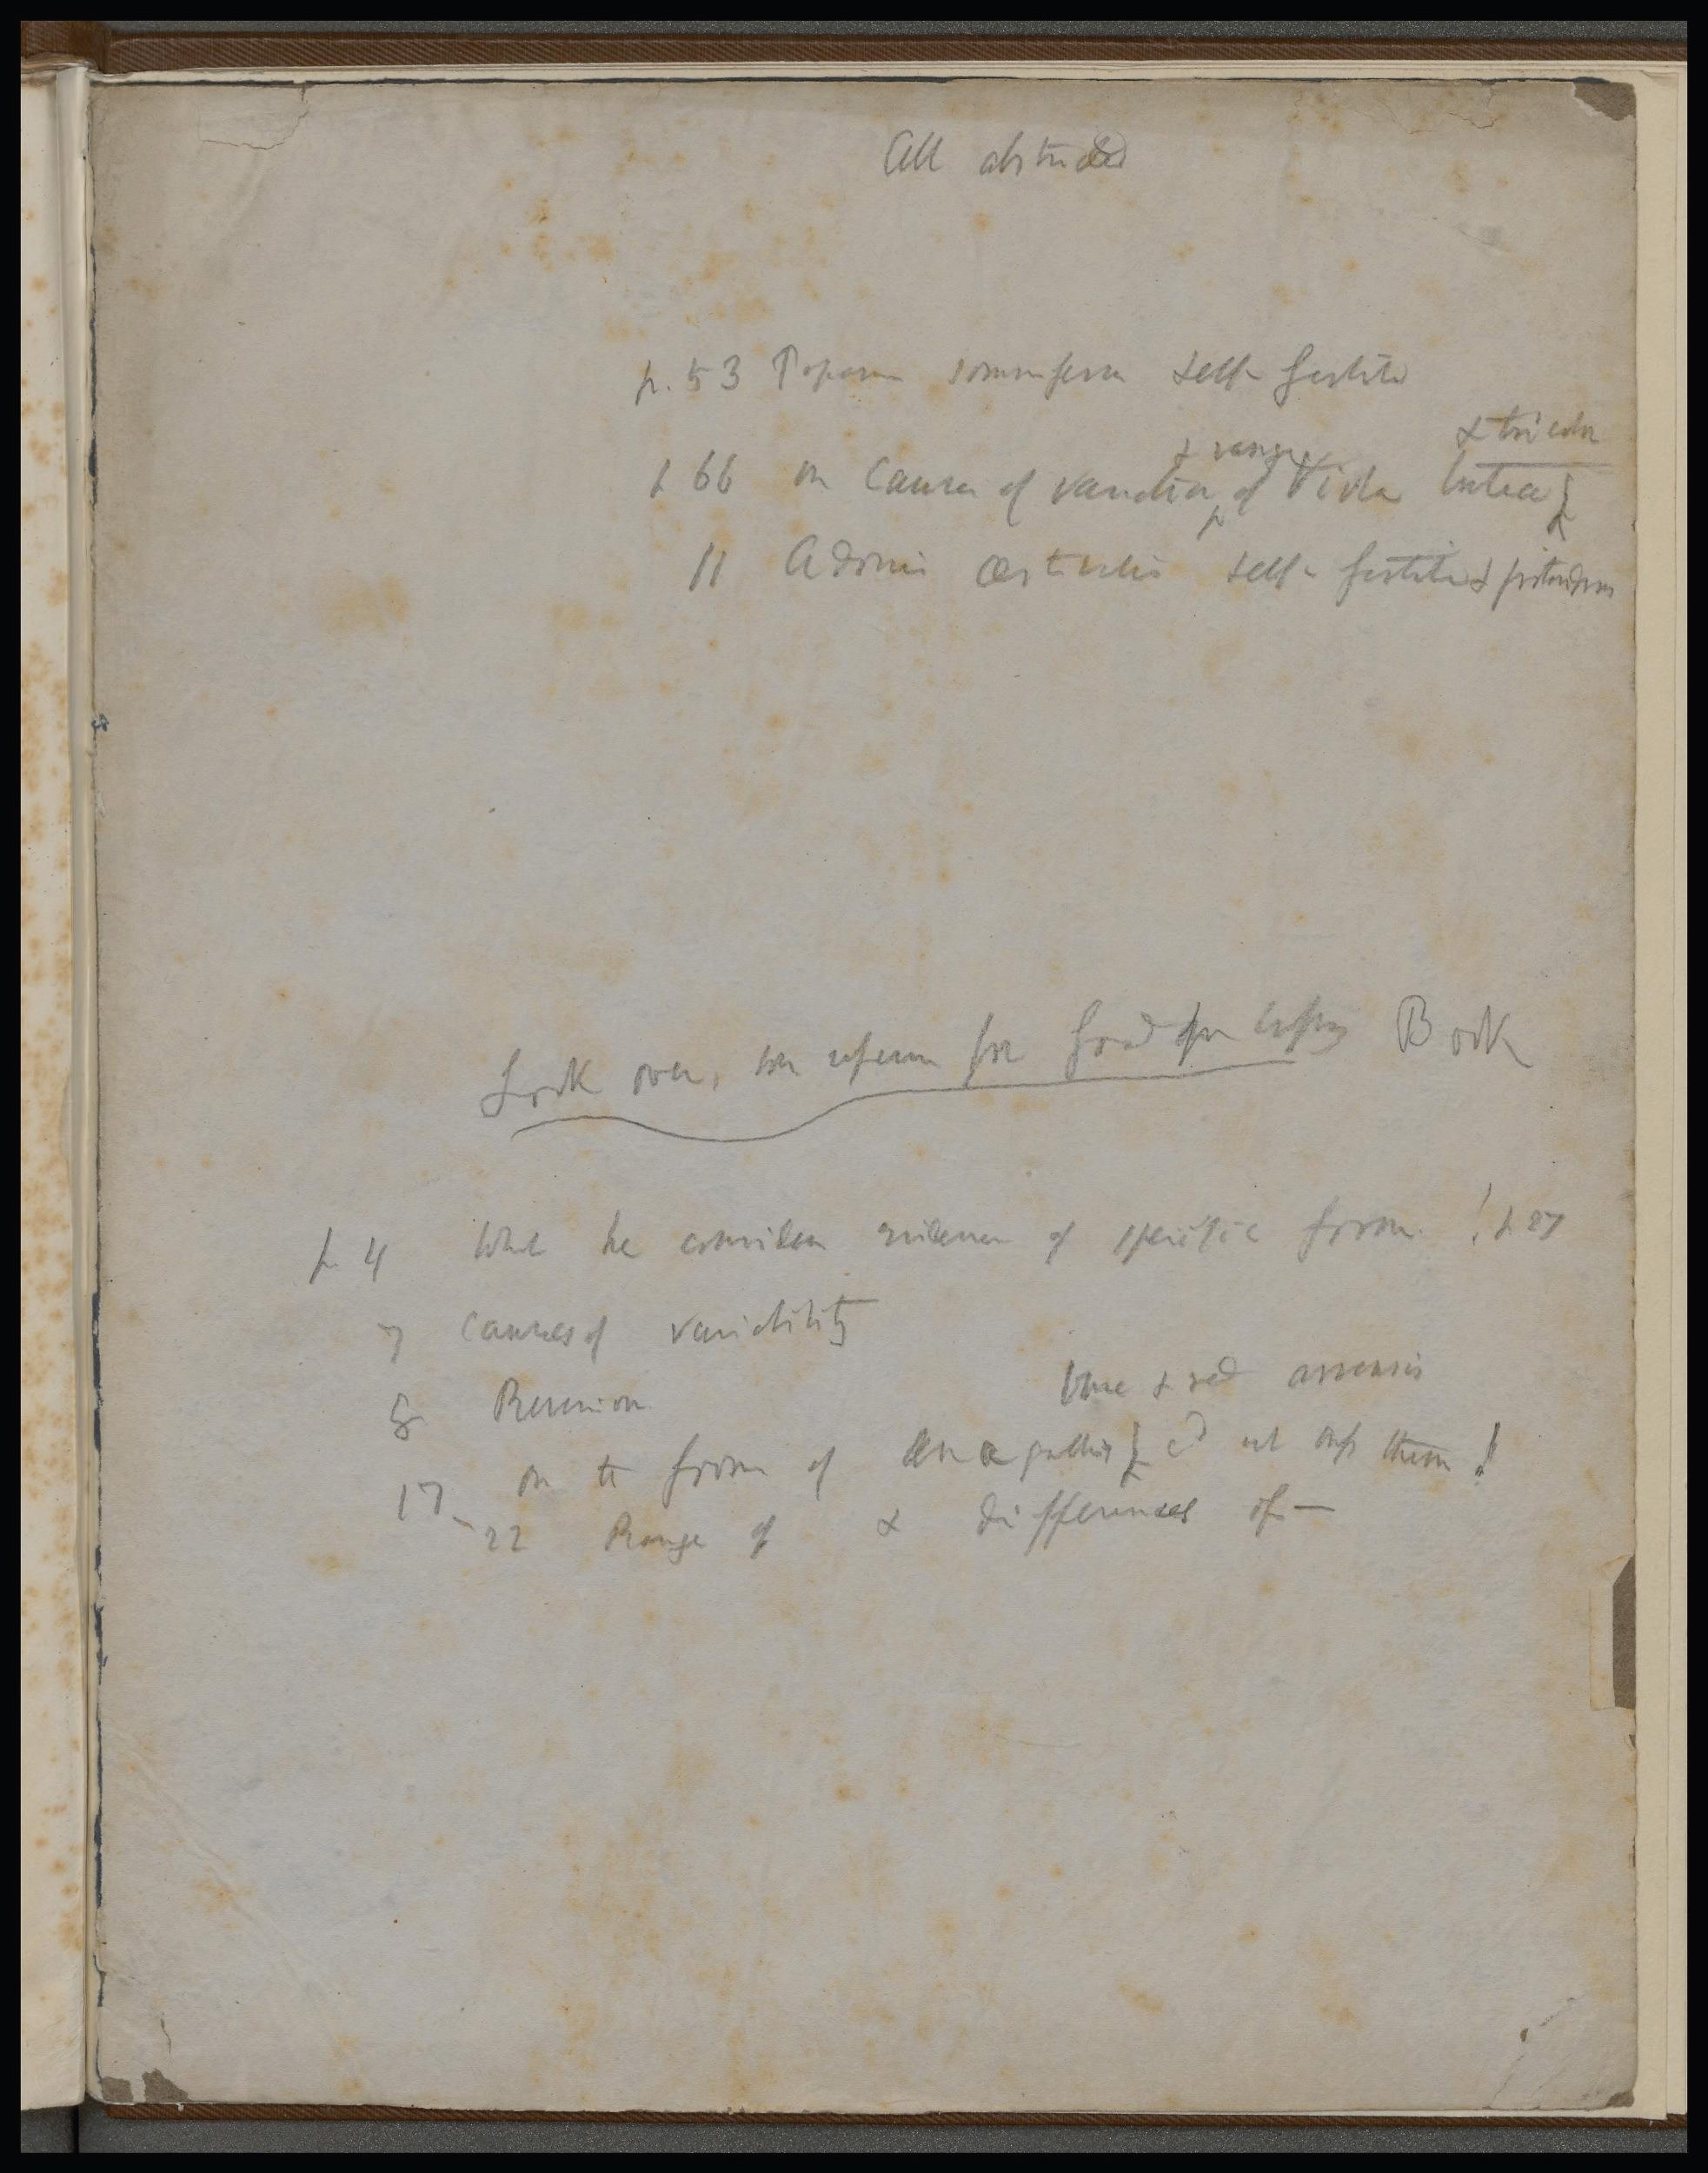 All abstracted
p. 53 Papaver somniferum self-fertile
& tricolor
& range
p 66 on Causes of variation of Viola lutea
11 Adonis æstivalis self-fertile &
Look over, for for Book
p. 4 What he considers evidence of specific form ! p 27
7 Causes of variability
8 Reversion
blue & red arvensis
17 on the forms of Anagallis cd not cross them !
22 Range of & differences of —